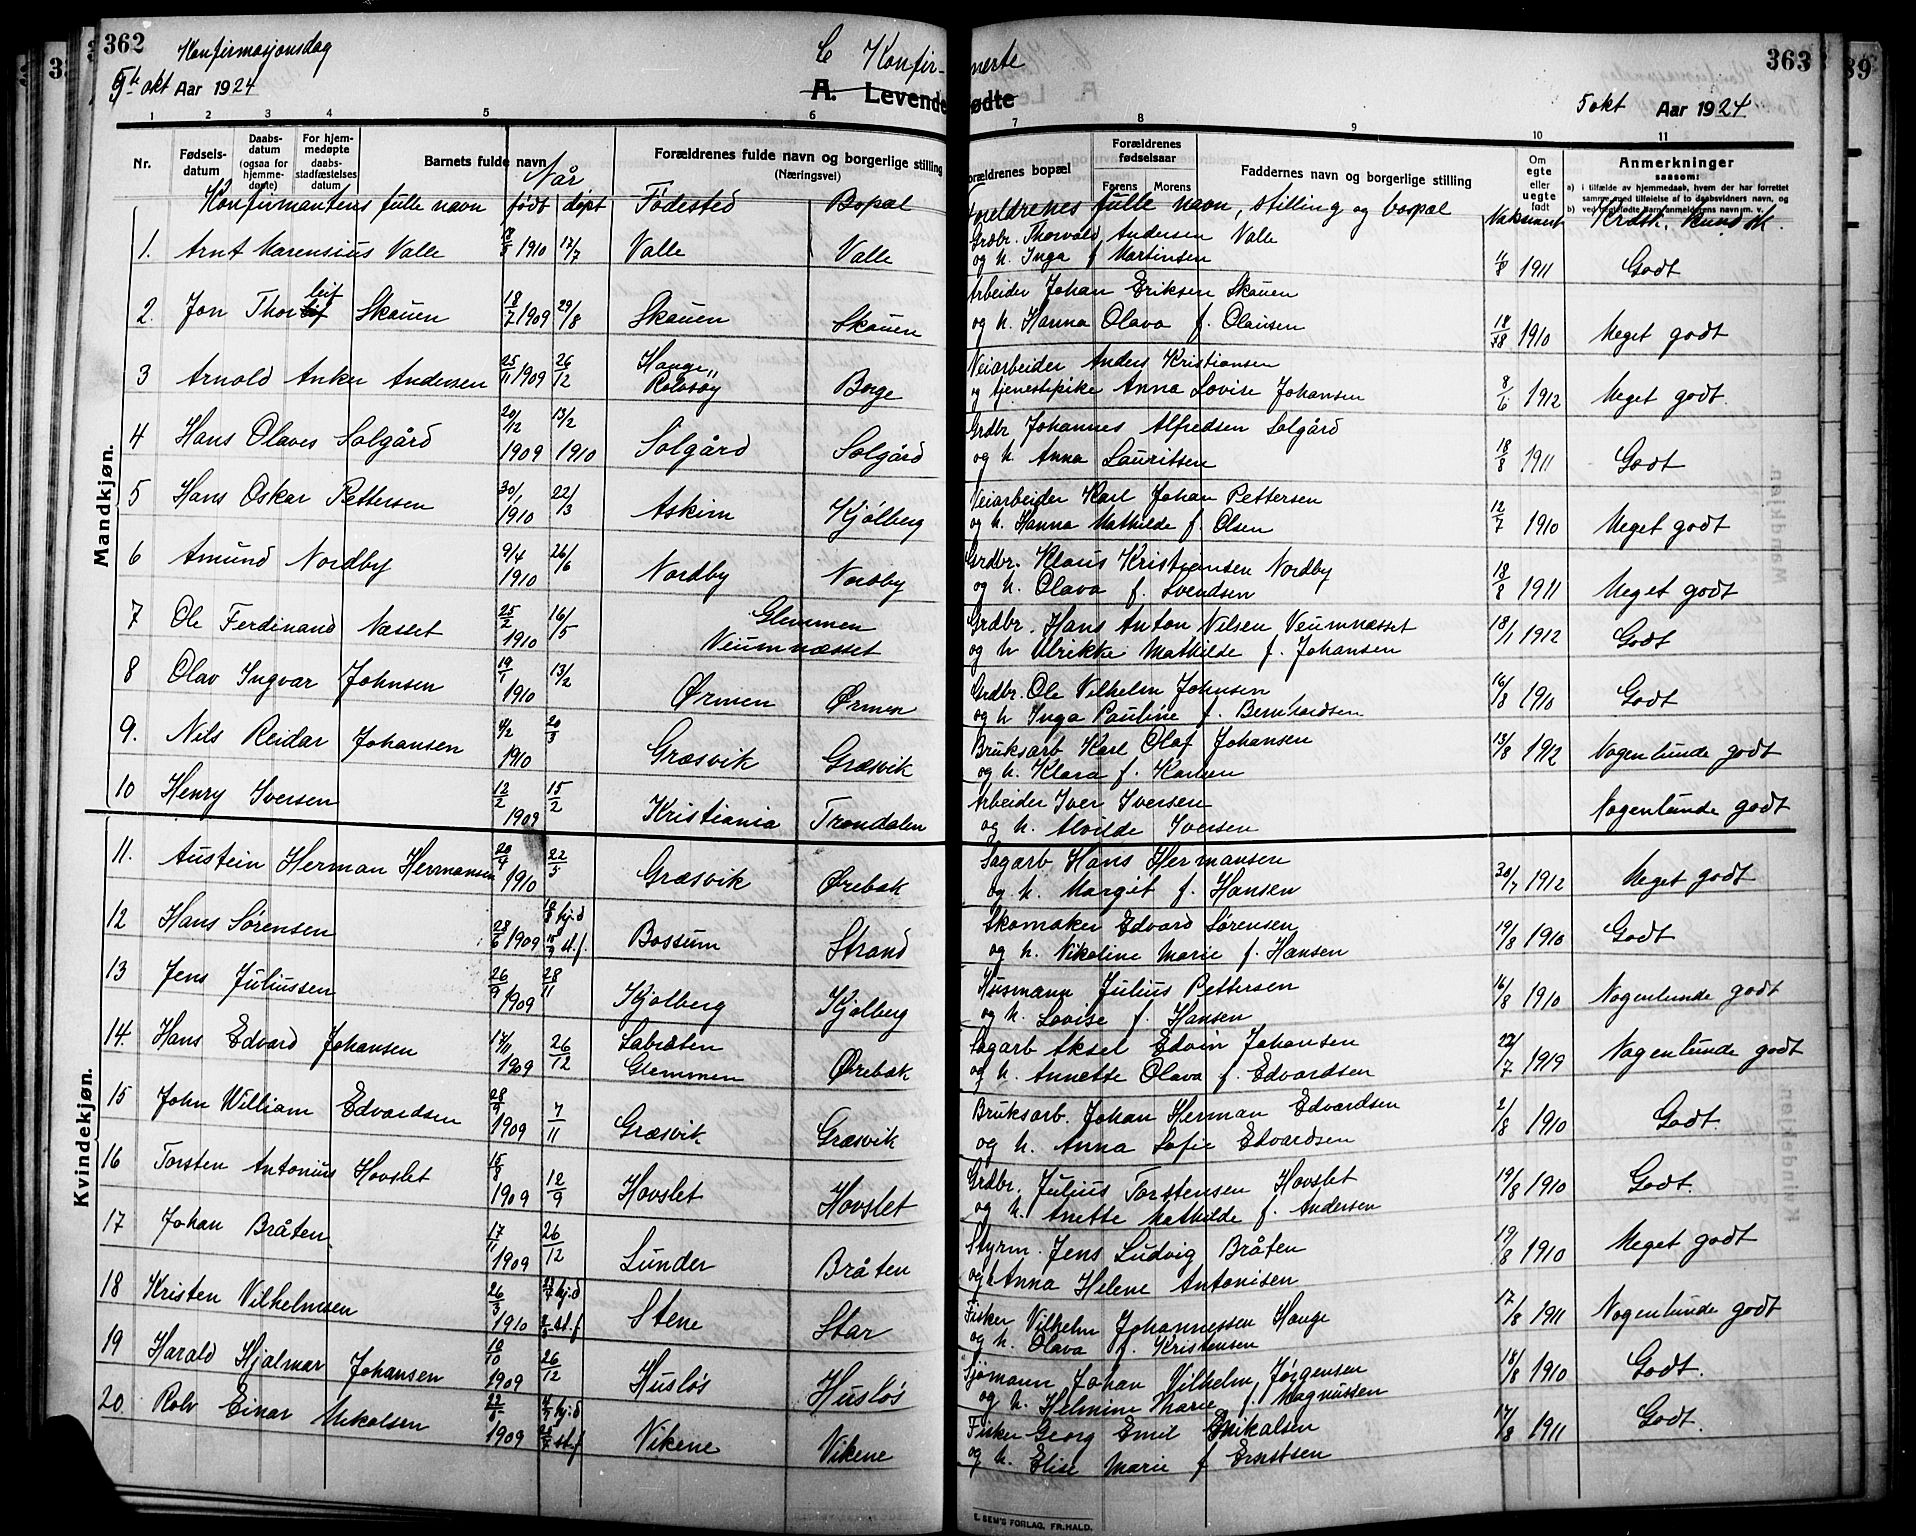 362 Konfirmasjonsdag
5te okt Aar 1924
C Konfir-
A. Levende
1 2 3 4 5 6
Nr. Fødselsdatum Daabsdatum (ogsaa for hjemmedøpte) For hjemmedøpte daabsstadfæstelsesdatum Barnets fulde navn Forældrenes fulde navn og borgerlige stilling (Næringsvei)
Når
Konfirmantens fulle navn født døpt Fødested Bopæl
Mandkjøn.
1. Arnt Marensius Valle 18/5 1910 17/7 Valle Valle
2. Jon Thorleif Skauen 18/7 1909 29/8 Skauen Skauen
3 Arnold Anker Andersen 25/11 1909 26/12 Hauge, Rolvsøy Borge
4 Hans Olaves Solgård 20/12 1909 13/2 1910 Solgård Solgård
5 Hans Oskar Pettersen 30/1 1910 22/3 Askim Kjølberg
6 Amund Nordby 9/4 1910 26/6 Nordby Nordby
7 Ole Ferdinand Næsset 25/2 1910 16/5 Glemmen Veumnæsset
8 Olav Ingvar Johnsen 19/1 1910 13/2 Ørmen Ørmen
9. Nils Reidar Johansen 4/2 1910 20/3 Græsvik Græsvik
10 Henry Iversen 12/2 1909 15/2 Kristiania Trondalen
Kvindekjøn.
11. Austein Herman Hermansen 20/4 1910 22/5 Græsvik Ørebæk
12 Hans Sørensen 28/6 1909 hj.d st.f. Bossum Strand
13 Jens Juliussen 26/9 1909 28/11 Kjølberg Kjølberg
14. Hans Edvard Johansen 17/11 1909 26/12 Labråten Glemmen Ørebæk
15 John William Edvardsen 28/9 1909 7/11 Græsvik Græsvik
16 Torsten Antonius Hovslet 15/8 1909 12/9 Hovslet Hovslet
17 Johan Bråten 17/11 1909 26/12 Lunder Bråten
18 Kristen Vilhelmsen 26/3 1910 hj.d st.f Stene Star
19 Harald Hjalmar Johansen 10/10 1909 26/12 Husløs Husløs
20. Rolv Einar Mikalsen 1909 hj.d st.f Vikene Vikene
363
nerte
ødte
5 okt Aar 1924
7 8 9 10 11
Forældrenes bopæl Forældrenes fødselsaar Farens Morens Faddernes navn og borgerlige stilling Om egte eller uegte født Anmerkninger saasom:
a) i tilfælde av hjemmedaab, hvem der har forrettet samme med tilføielse av to daabsvidners navn, og
b) ved uegtefødte barn anmelderens navn m. v.
Foreldrenes fulle navn, stilling og bopæl Vaksinert Krdth. kundsk.
Grdbr. Thorvald Andersen Valle
og h. Inga f Martinsen 4/8 1911 Godt
Arbeider Johan Eriksen Skauen
og h. Hanna Olava f. Olausen 18/8 1910 Meget godt
Veiarbeider Anders Kristiansen
og tjenestepike Anna Lovise Johansen 8/6 1912 Meget godt.
Grdbr Johannes Alfredsen Solgård
og h. Anna Lauritsen 18/8 1911 Godt
Veiarbeider Karl Johan Pettersen
og h. Hanna Mathilde f. Olsen 12/7 1910 Meget godt
Grdbr. Klaus Kristiansen Nordby
og h. Olava f. Svendsen 18/8 1911 Meget godt
Grdbr. Hans Anton Nilsen Veumnæsset
og h Ulrikke Mathilde f. Johansen 18/1 1912 Godt
Grdbr. Ole Vilhelm Johnsen
og h Inga Pauline f. Bernhardsen 16/8 1910 Godt
Bruksarb Karl Olaf Johansen
og h. Klara f. Karlsen 13/8 1912 Nogenlunde godt
Arbeider Iver Iversen
og h. Alvilde Iversen Nogenlunde godt
Sagarb Hans Hermansen
og h. Margit f. Hansen 30/7 1912 Meget godt
Skomaker Edvard Sørensen
og h. Nikoline Marie f. Hansen 19/8 1910 Godt
Husmann Julius Pettersen
og h. Lovise f. Hansen 16/8 1910 Nogenlunde godt
Sagarb Aksel Edvin Johansen
og h. Annette Olava f. Edvardsen 22/7 1919 Nogenlunde godt
Bruksarb. Johan Herman Edvardsen
og h. Anna Sofie Edvardsen 2/8 1910 Godt.
Grdbr. Julius Torstensen Hovslet
og h. Anette Mathilde f. Andersen 19/8 1910 Godt.
Styrm. Jens Ludvig Bråten
og h Anna Helene Antonisen 19/8 1910 Meget godt
Fisker Vilhelm Johannessen Hauge
og h. Olava f. Kristensen 17/8 1911 Nogenlunde godt
Sjømann Johan Vilhelm Jørgensen
og h. Helmine Marie f. Magnussen 18/8 1910 Godt.
Fisker Georg Emil Mikalsen
og h. Elise Marie f Ernstsen 17/8 1911 Godt.
E. SEM'S FORLAG, FR.HALD.
89